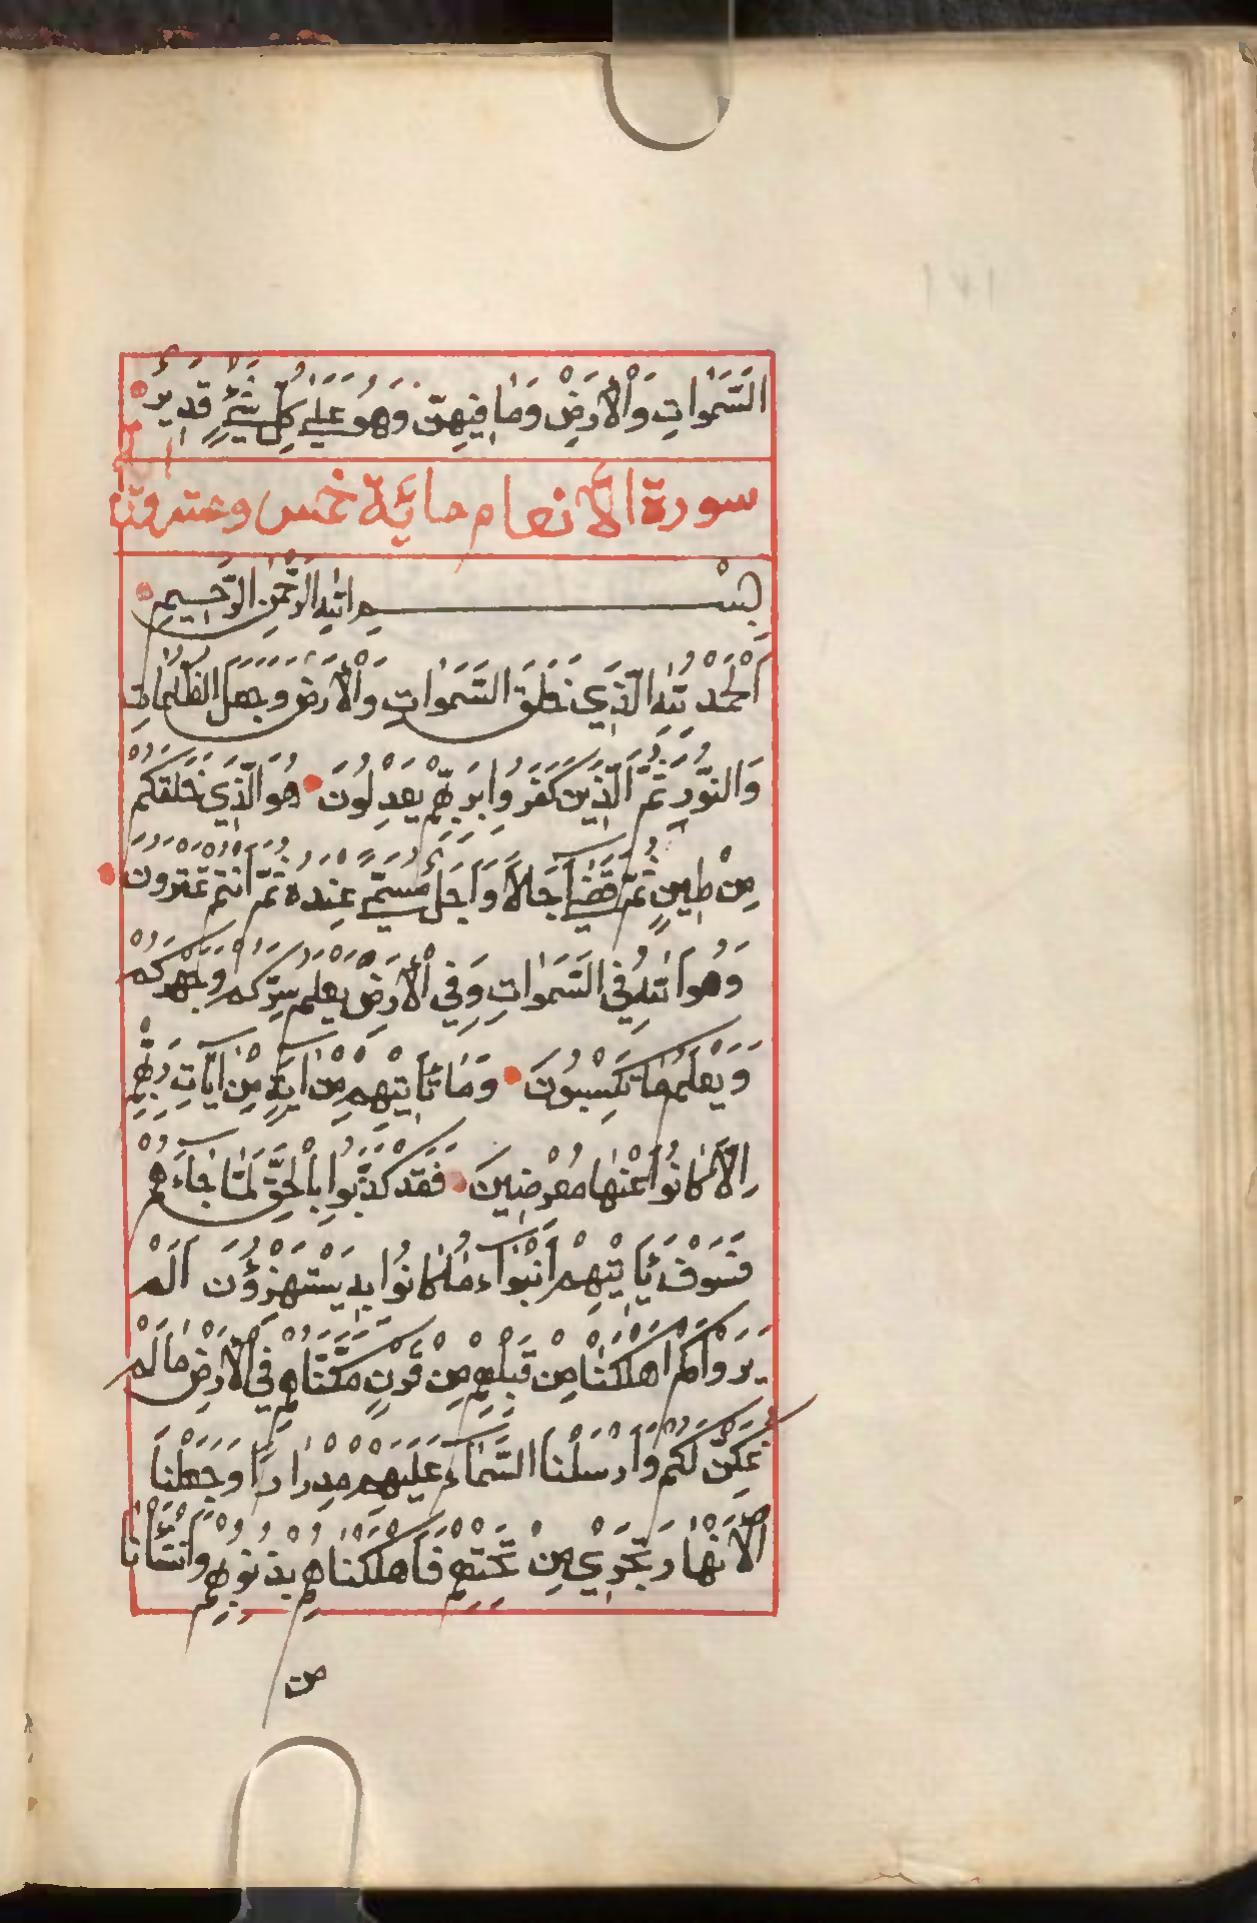 السَّمٰوَاتِ وَالْأَرْضِ وَمَا فِيهِنَّ وَهُوَ عَلٰى كُلِّ شَيْءٍ قَدِيرٌ
سورة الأنعام مائة خمس وعشرون
بِسْمِ اللهِ الرَّحْمٰنِ الرَّحِيمِ
اَلْحَمْدُ لِلّٰهِ الَّذِي خَلَقَ السَّمٰوَاتِ وَالْأَرْضَ وَجَعَلَ الظُّلُمَاتِ
وَالنُّورَ ثُمَّ الَّذِينَ كَفَرُوا بِرَبِّهِمْ يَعْدِلُونَ هُوَ الَّذِي خَلَقَكُمْ
مِنْ طِينٍ ثُمَّ قَضٰى أَجَلًا وَأَجَلٌ مُسَمًّى عِنْدَهُ ثُمَّ أَنْتُمْ تَمْتَرُونَ
وَهُوَ اللهُ فِي السَّمٰوَاتِ وَفِي الْأَرْضِ يَعْلَمُ سِرَّكُمْ وَجَهْرَكُمْ
وَيَعْلَمُ مَا تَكْسِبُونَ وَمَا تَأْتِيهِمْ مِنْ اٰيَةٍ مِنْ اٰيَاتِ رَبِّهِمْ
اِلَّا كَانُوا عَنْهَا مُعْرِضِينَ فَقَدْ كَذَّبُوا بِالْحَقِّ لَمَّا جَاءَهُمْ
فَسَوْفَ يَأْتِيهِمْ أَنْبٰؤُا مَا كَانُوا بِهِ يَسْتَهْزِؤُنَ اَلَمْ
يَرَوْا كَمْ أَهْلَكْنَا مِنْ قَبْلِهِمْ مِنْ قَرْنٍ مَكَّنَّاهُمْ فِي الْأَرْضِ مَا لَمْ
نُمَكِّنْ لَكُمْ وَأَرْسَلْنَا السَّمَاءَ عَلَيْهِمْ مِدْرَارًا وَجَعَلْنَا
الْأَنْهَارَ تَجْرِي مِنْ تَحْتِهِمْ فَأَهْلَكْنَاهُمْ بِذُنُوبِهِمْ وَأَنْشَأْنَا
من